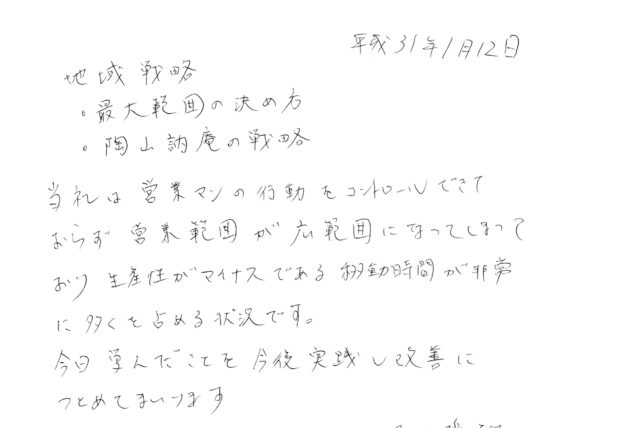 平成31年1月12日
地域戦略
。最大範囲の決め方
。陶山訥庵の戦略
当社は営業マンの行動をコントロールできて
おらず営業範囲が広範囲になってしまって
おり生産性がマイナスである移動時間が非常
に多くを占める状況です。
今日学んだことを今後実践し改善に
つとめてまいります